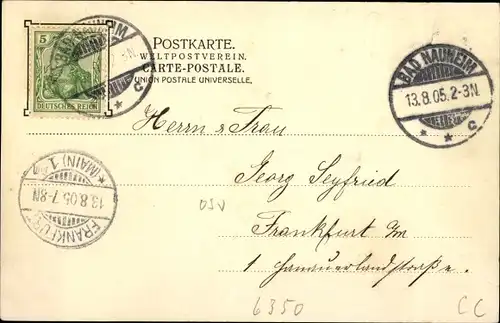 5
DEUTSCHES REICH
BAD NAUHEIM
C
POSTKARTE.
WELTPOSTVEREIN.
CARTE-POSTALE.
UNION POSTALE UNIVERSELLE.
BAD NAUHEIM
13.8.05.2-3N.
* * C
Herrn & Frau
Georg Seyfried
Frankfurt a/m
1 Hanauerlandstraße.
FRANKFURT
13.8.05.7-8N
* (MAIN) 1.
6350
CC